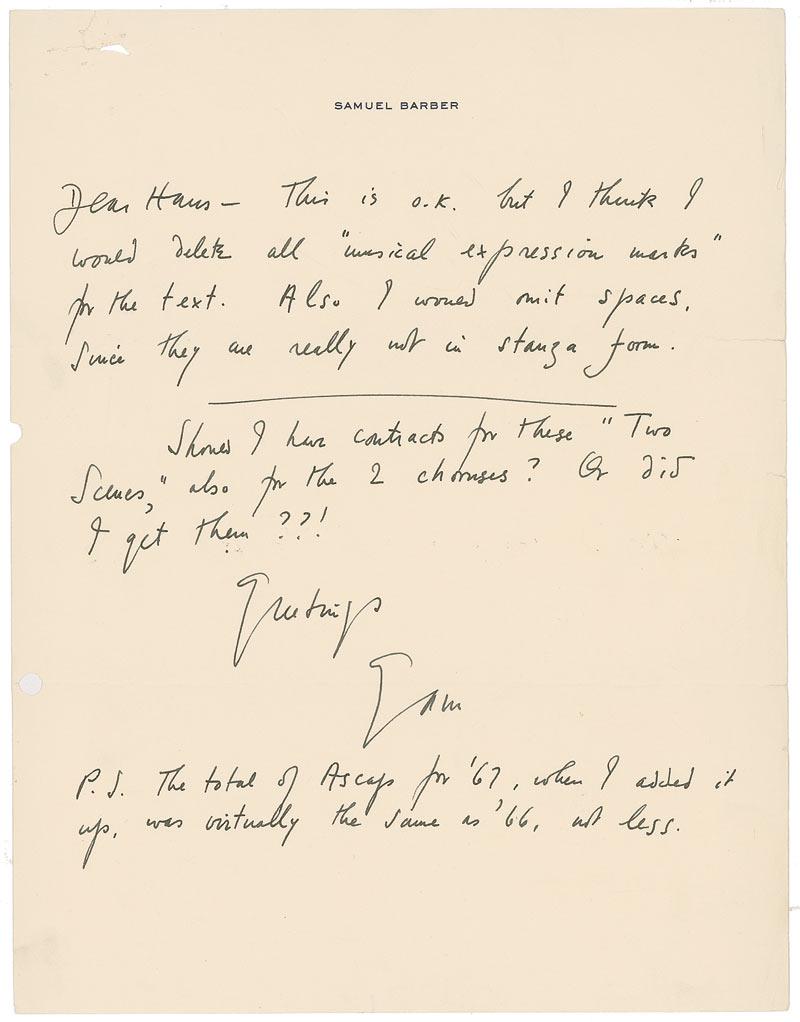 SAMUEL BARBER
Dear Hans – This is o.k. but I think I
would delete all "musical expression marks"
for the text. Also I would omit spaces,
since they are really not in stanza form.
Should I have contracts for these "Two
Scenes," also for the 2 choruses? Or did
I get them ??!
Greetings
Sam
P.S. The total of Ascap for '67, when I added it
up, was virtually the same as '66, not less.